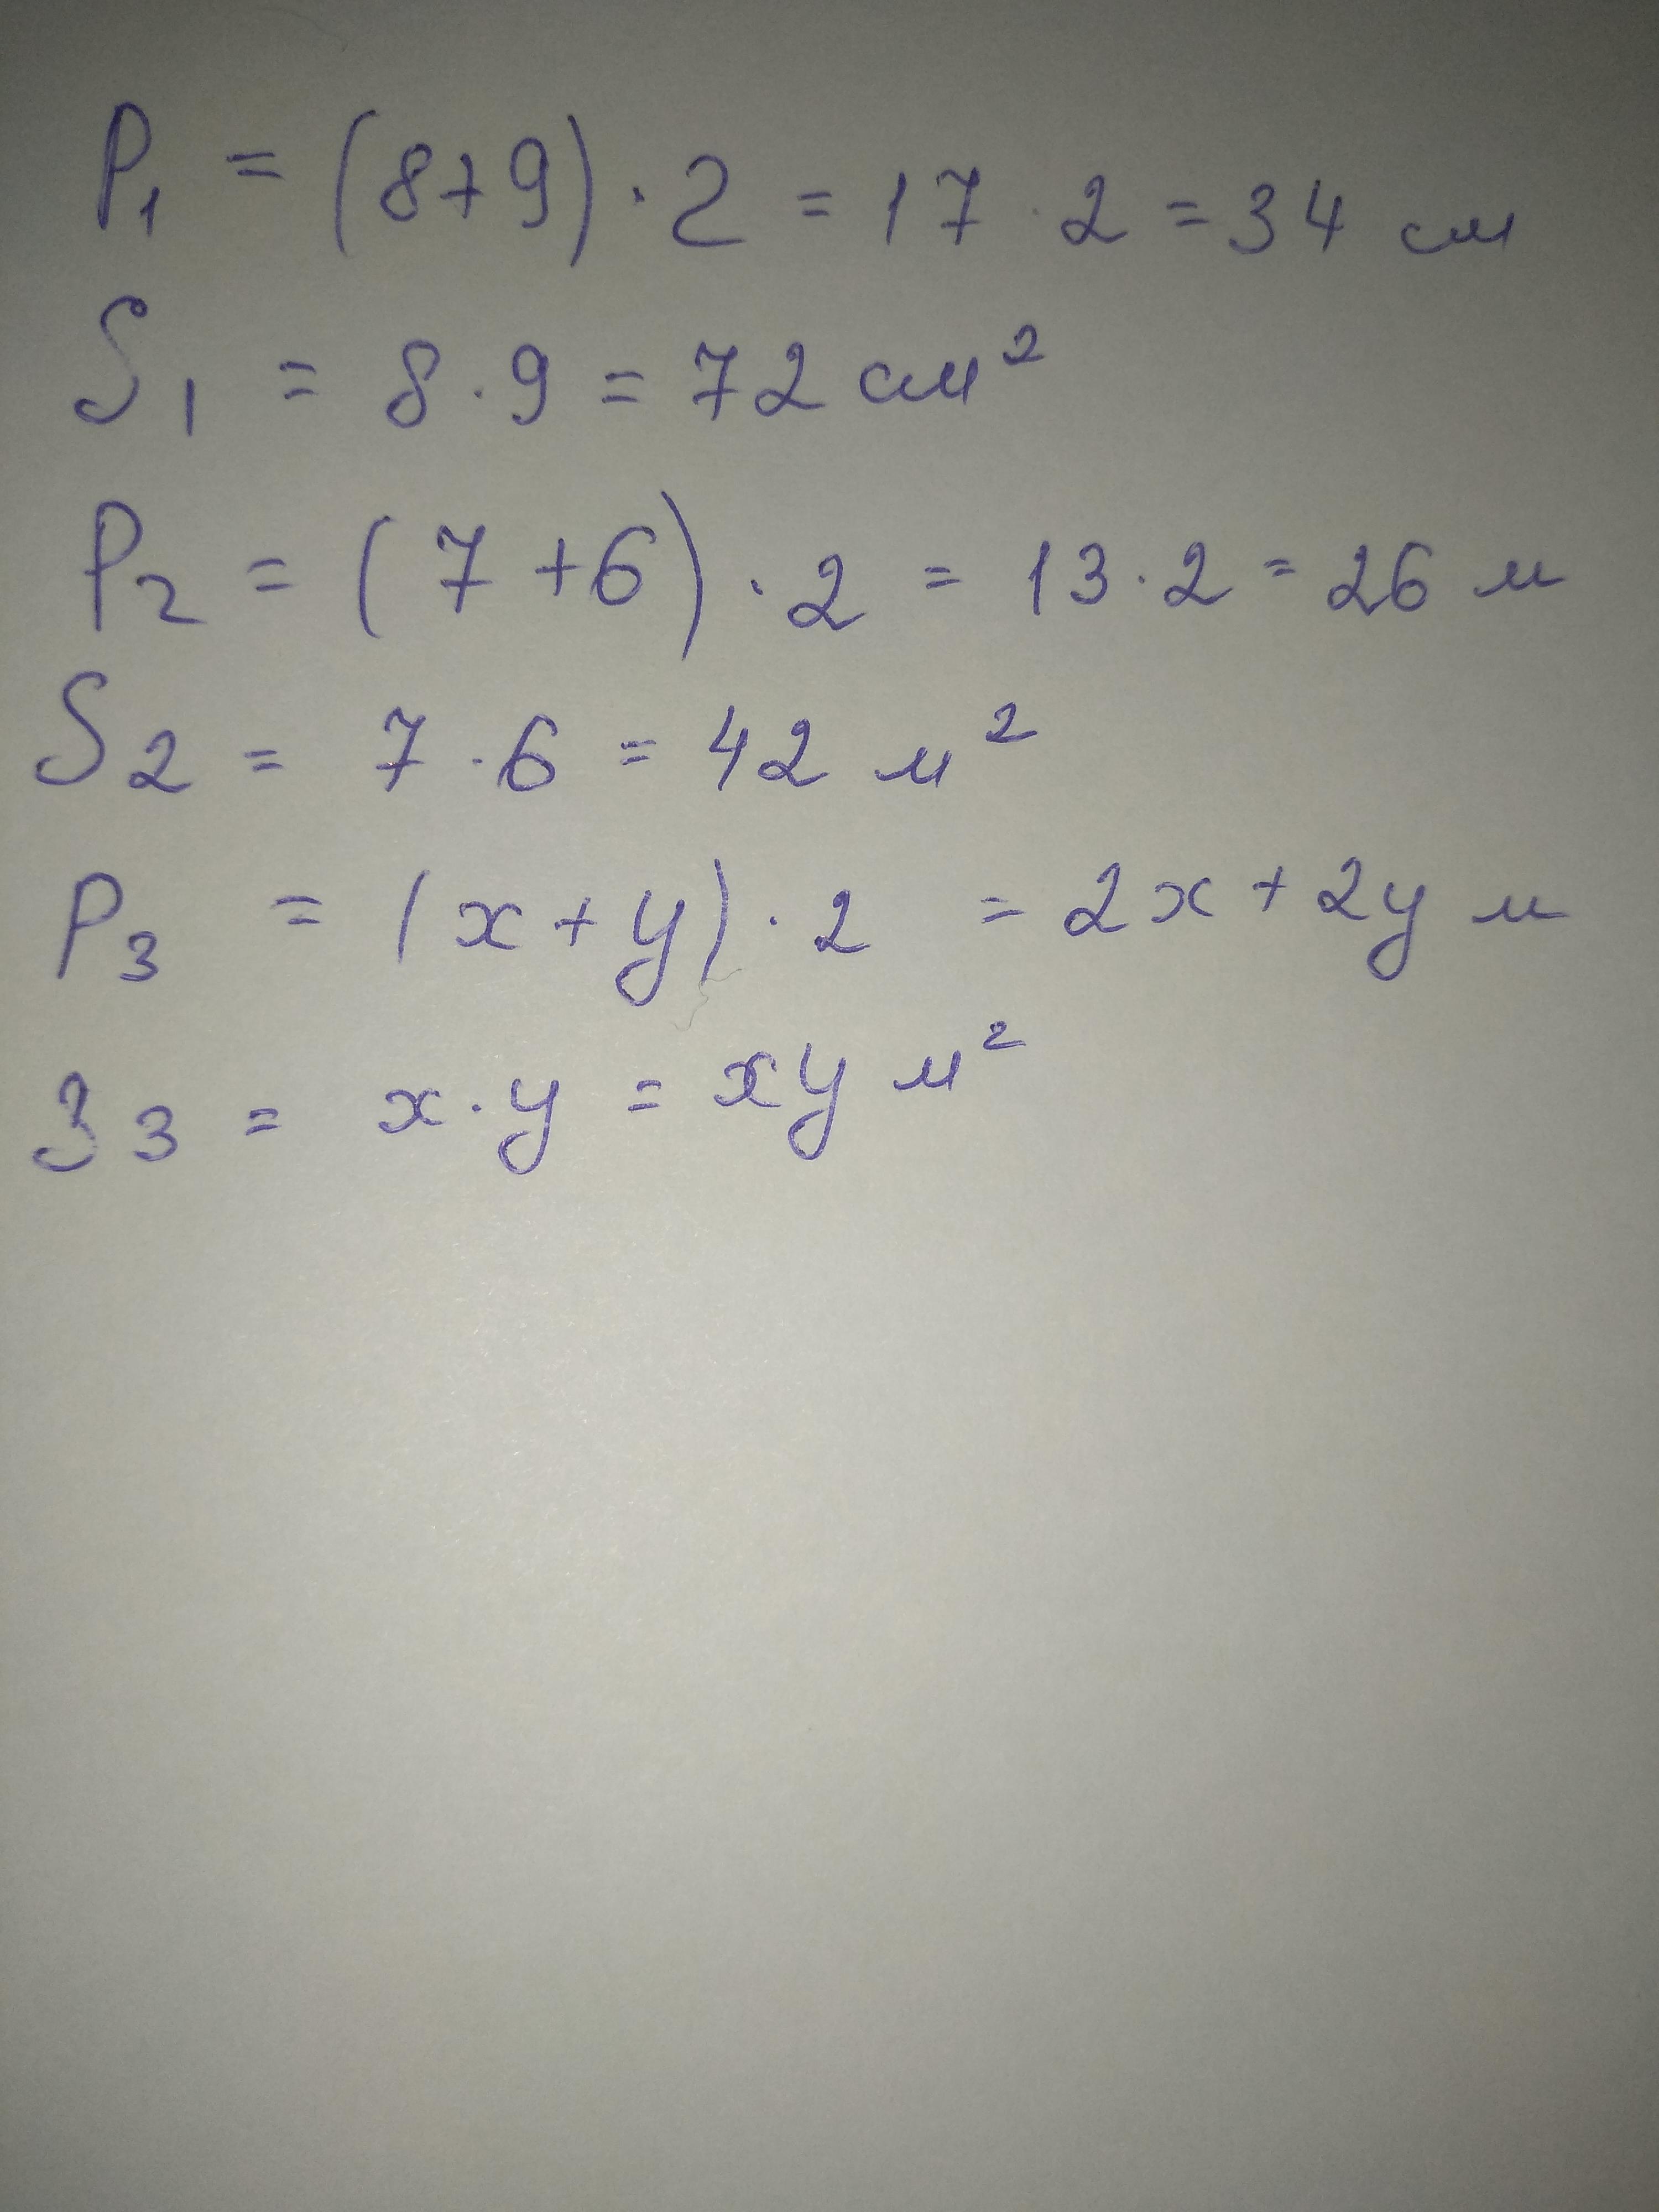 P₁ = (8+9) · 2 = 17 · 2 = 34 см
S₁ = 8 · 9 = 72 см²
P₂ = (7+6) · 2 = 13 · 2 = 26 м
S₂ = 7 · 6 = 42 м²
P₃ = (x+y) · 2 = 2x + 2y м
S₃ = x · y = xy м²